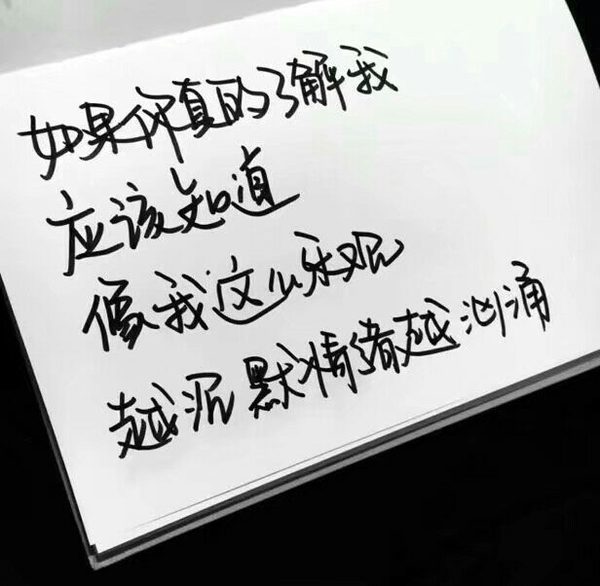 如果你真的了解我
应该知道
像我这么乐观
越沉默情绪越汹涌